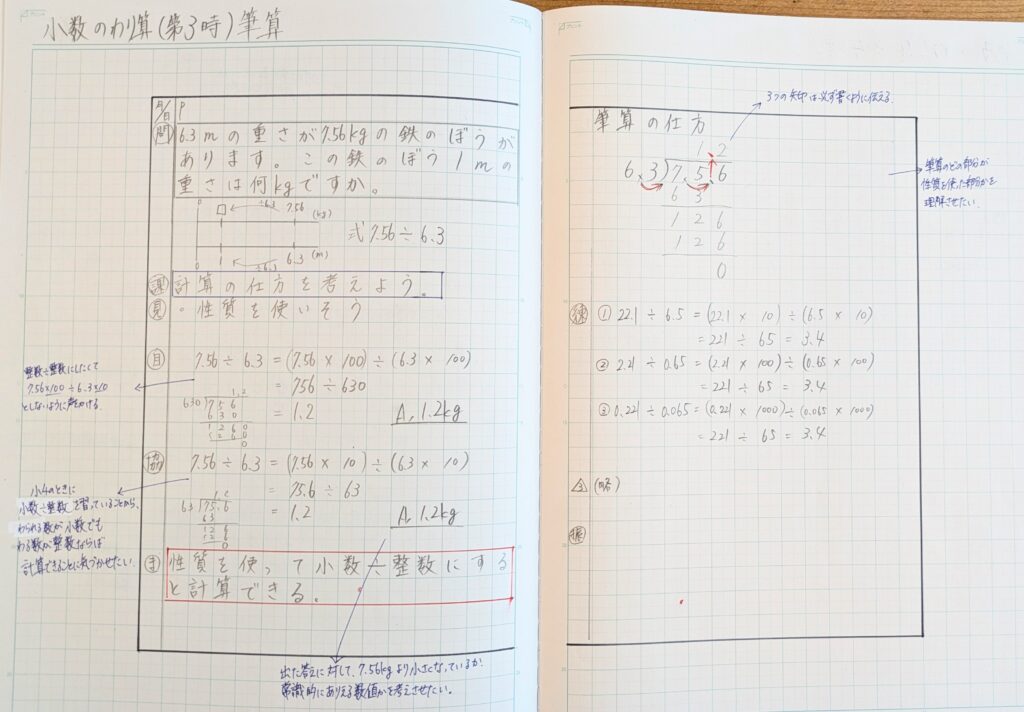 小数のわり算(第3時)筆算
月/日 P
問 6.3mの重さが7.56kgの鉄のぼうが
あります。この鉄のぼう1mの
重さは何kgですか。
0 □ ÷6.3 7.56 (kg)
式 7.56÷6.3
0 1 ÷6.3 6.3 (m)
課 計算の仕方を考えよう。
見 ・性質を使いそう
自 7.56÷6.3=(7.56×100)÷(6.3×100)
=756÷630
=1.2 A, 1.2kg
1.2
630)756
630
1260
1260
0
整数÷整数にしたくて
7.56×100÷6.3×10
としないように声をかける.
協 7.56÷6.3=(7.56×10)÷(6.3×10)
=75.6÷63
=1.2 A, 1.2kg
1.2
63)75.6
63
126
126
0
小4のときに
小数÷整数を習っていることから、
わられる数が小数でも
わる数が整数ならば
計算できることに気づかせたい.
ま 性質を使って小数÷整数にする
と計算できる.
出た答えに対して、7.56kgより小さくなっているか.
常識的にありえる数値かを考えさせたい。
3つの矢印は必ず書くように伝える.
筆算の仕方
1 2
6.3)7.5 6
6 3
1 2 6
1 2 6
0
筆算のどの部分が
性質を使った部分かを
理解させたい.
練 ① 22.1÷6.5=(22.1×10)÷(6.5×10)
=221÷65=3.4
② 2.21÷0.65=(2.21×100)÷(0.65×100)
=221÷65=3.4
③ 0.221÷0.065=(0.221×1000)÷(0.065×1000)
=221÷65=3.4
△3 (略)
振